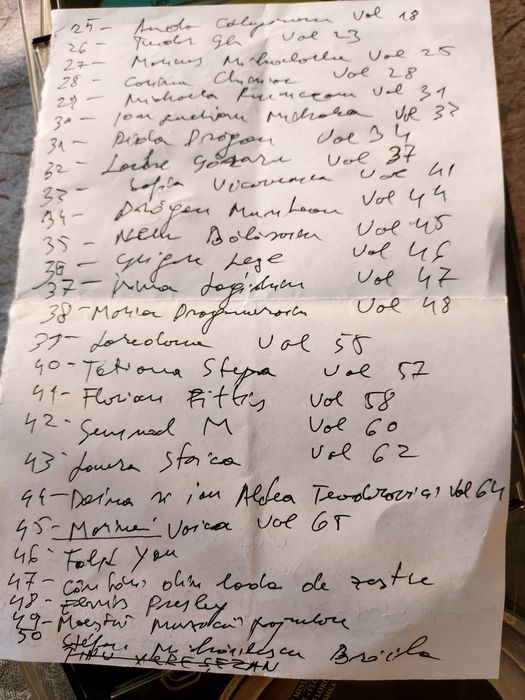 25- Anda Călugăreanu Vol 18
26- Tudor Gh Vol 23
27- Vol 25
28- Corina Chiriac Vol 28
29- Mihaela Runceanu Vol 31
30- Ion Luchian Mihalea Vol 33
31- Dida Drăgan Vol 34
32- Vol 37
33- Sofia Vicoveanca Vol 41
34- Drăgan Muntean Vol 44
35- Nelu Bălășoiu Vol 45
36- Grigore Leșe Vol 46
37- Irina Loghin Vol 47
38- Maria Dragomiroiu Vol 48
39- Loredana Vol 55
40- Tatiana Stepa Vol 57
41- Florian Pittiș Vol 58
42- Semnal M Vol 60
43- Laura Stoica Vol 62
44- Doina si ion Aldea Teodorovici Vol 64
45- Voica Vol 65
46- Talpă You
47- Cântări din lada de zestre
48- Elvis Presley
49- Maeștri Muzicii populare
50 Ștefan Mihăilescu Brăila